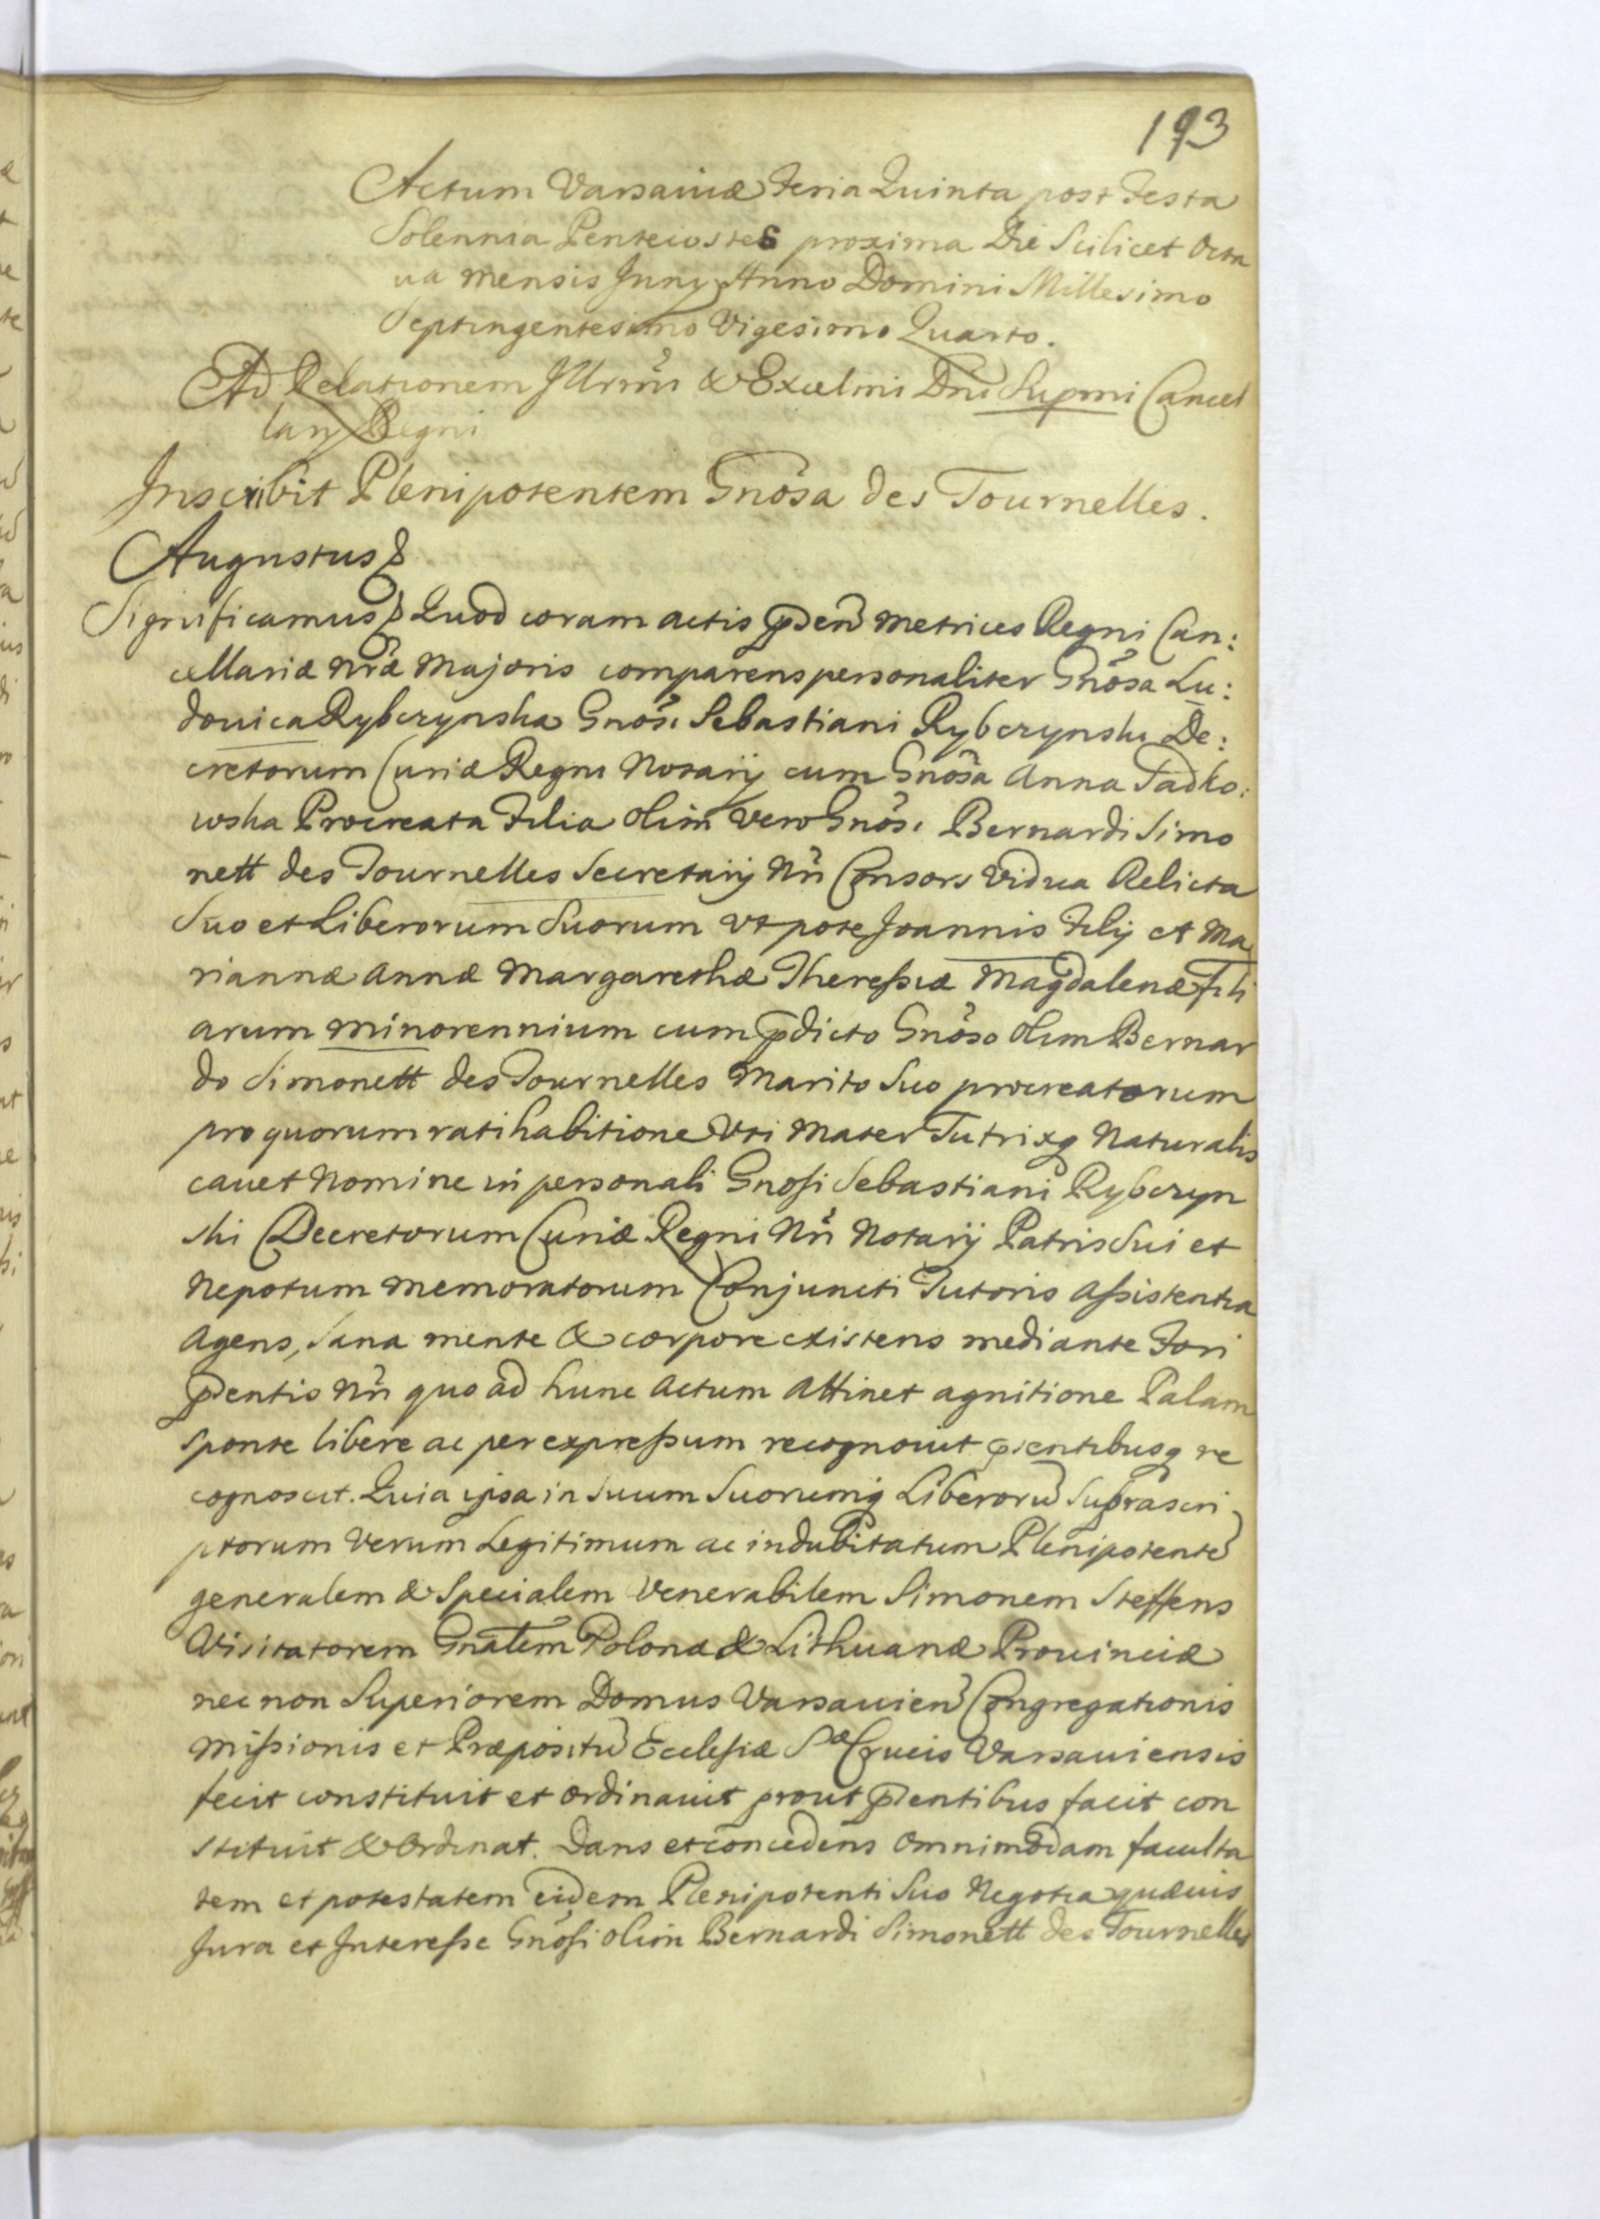 193
Actum Varsaviæ Feria Quinta post Festa
Solennia Pentecostes proxima Die Scilicet Octa
va mensis Junij Anno Domini Millesimo
Septingentesimo Vigesimo Quarto.
Ad Relationem Illrmi & Excelmi Dni Supmi Cancel
larij Regni
Inscribit Plenipotentem Gnosa des Tournelles.
Augustus
Significamus Quod coram actis pden Metrices Regni Can:
cellariæ Nræ Majoris comparens personaliter Gnosa Lu:
dovica Rybczynska Gnosi Sebastiani Rybczynski De:
cretorum Curiæ Regni Notarij cum Gnosa Anna Sadko:
wska Procreata Filia olim vero Gnosi Bernardi Simo
nett des Tournelles Secretarij Nri Consors Vidua Relicta
Suo et Liberorum Suorum Vt pote Joannis Filij et Ma
riannæ Annæ Margarethæ Theressiæ Magdalenæ Fili
arum minorennium cum pdicto Gnoso olim Bernar
do Simonett des Tournelles Marito Suo procreatorum
pro quorum ratihabitione Vti Mater Tutrixq Naturalis
cavet Nomine in personali Gnosi Sebastiani Rybczyn
ski Decretorum Curiæ Regni Nri Notarij Patris Sui et
Nepotum memoratorum Conjuncti Tutoris Assistentia
Agens, Sana mente & corpore existens mediante Fori
pdentis Nri quo ad hunc Actum Attinet agnitione Palam
sponte libere ac per expressum recognovit psentibusq re
cognoscit. Quia ipsa in Suum Suorumq Liberorū Suprascri
ptorum Verum Legitimum ac indubitatum Plenipotente
generalem & Specialem Venerabilem Simonem Steffens
Visitatorem Gnalem Polonæ & Lithuanæ Provinciæ
nec non Superiorem Domus Varsavien Congregationis
Missionis et Præpositū Ecclesiæ Sæ Crucis Varsaviensis
fecit constituit et ordinavit prout psentibus facit con
stituit & Ordinat. Dans et concedens omnimodam faculta
tem et potestatem eidem Plenipotenti Suo Negotia quævis
Jura et Interesse Gnosi olim Bernardi Simonett des Tournelles